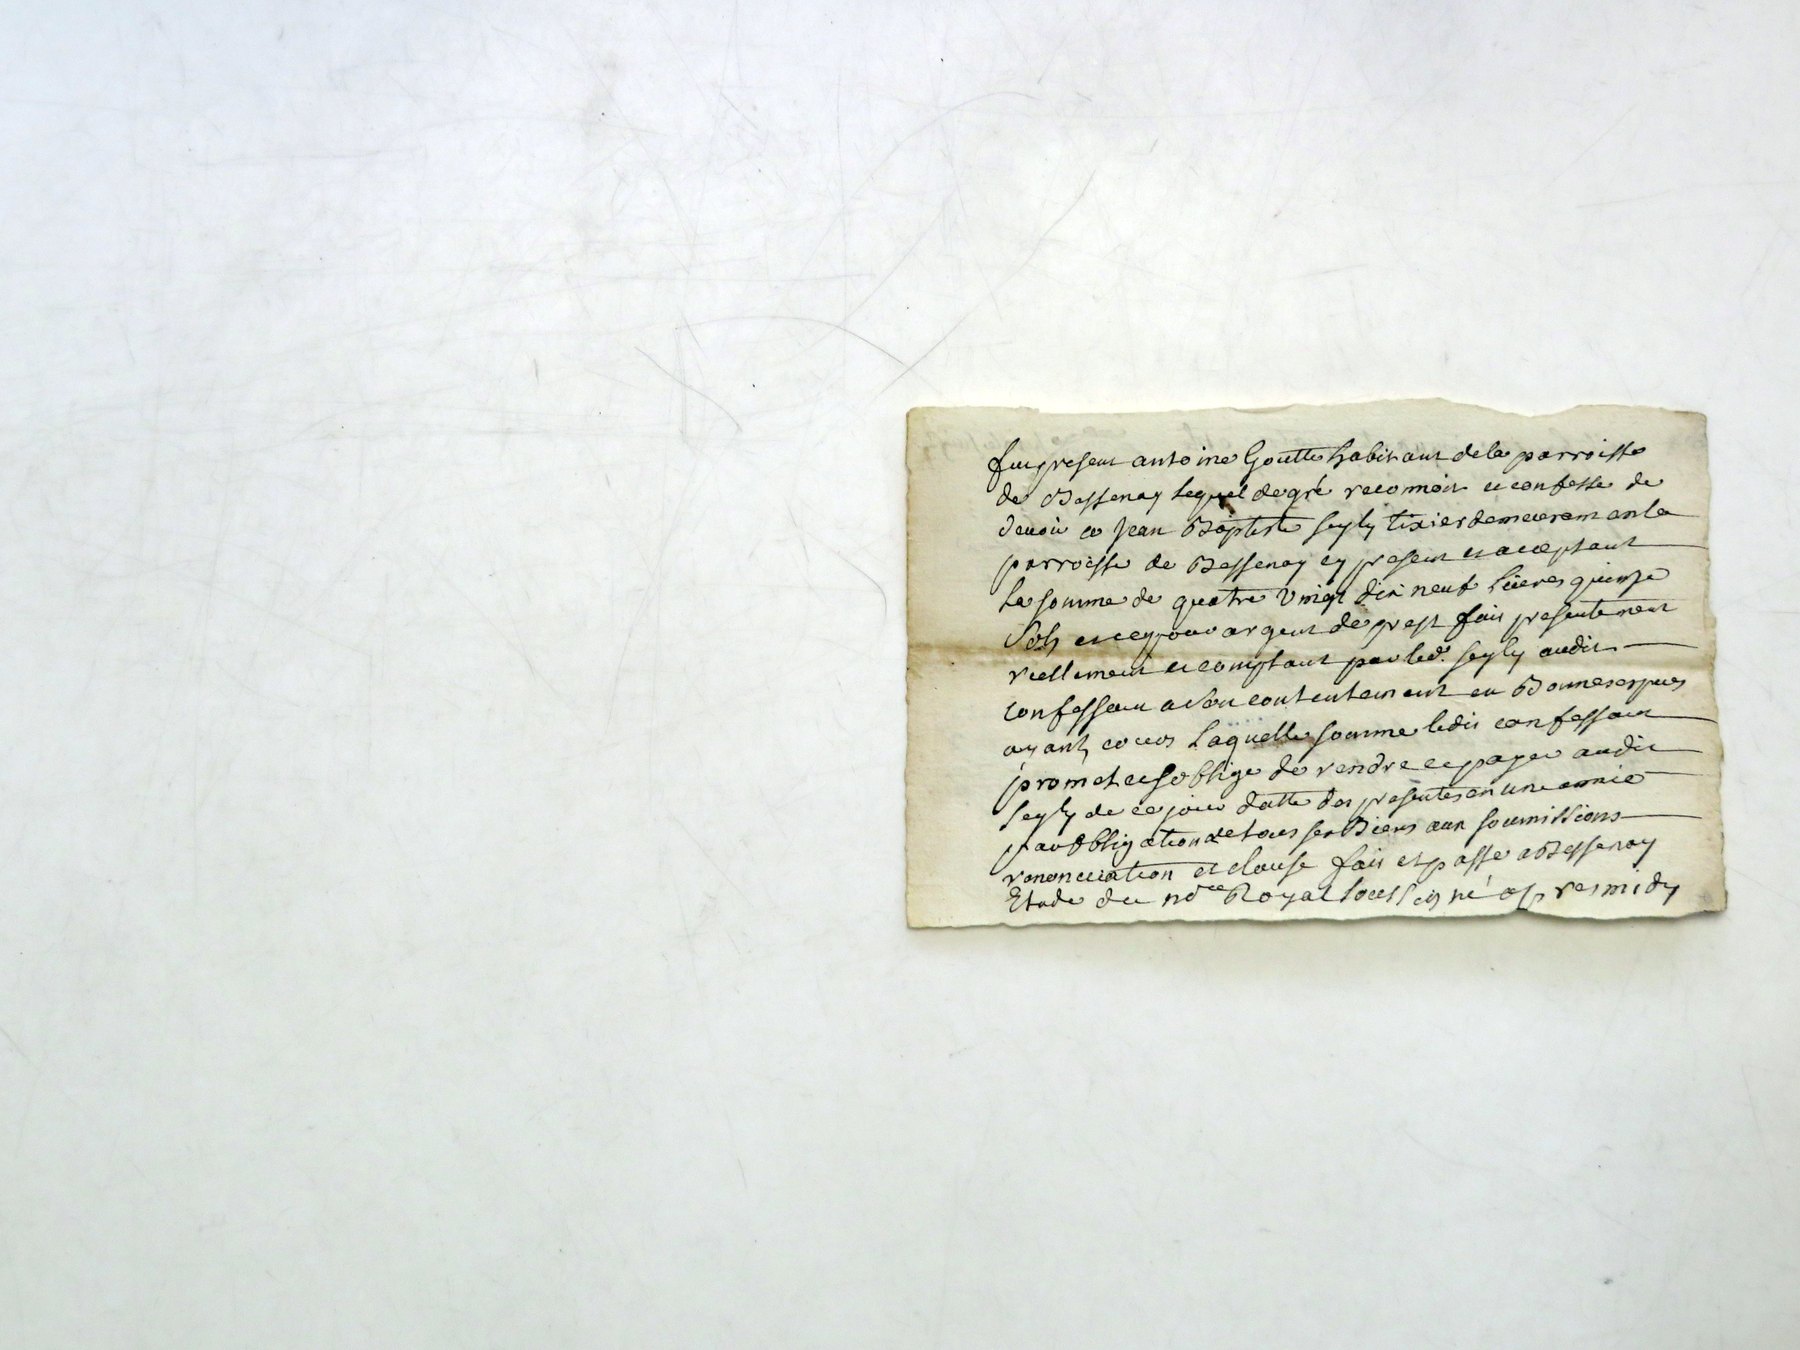 fut present antoine Goutte habitant de la parroisse
de Bessenay lequel de gré reconnoit et confesse de
devoir a Jean Baptiste Seyly tixier demeurant en la
parroisse de Bessenay cy present et acceptant
La somme de quatre vingt dix neuf livres quinze
Sols et ce pour argent de prest fait presentement
reellement et comptant par led. Seyly audit
Confessant a son contentement en Bonnes especes
ayant cours Laquelle somme ledit confessant
promet et s'oblige de rendre et payer audit
Seyly de ce jour datte des presentes en une année
par obligation de tous ses Biens aux soumissions
renonciation et clause fait et passé a Bessenay
Etude du nore Royal soussigné apres midy